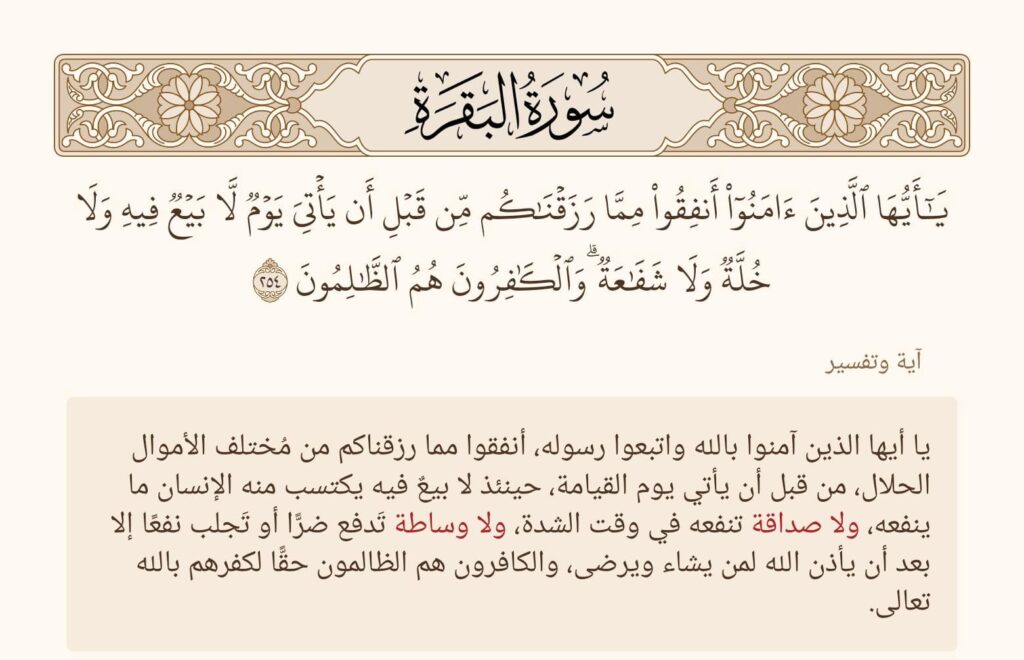 سُورَةُ البَقَرَةِ
يَـٰٓأَيُّهَا ٱلَّذِينَ ءَامَنُوٓا۟ أَنفِقُوا۟ مِمَّا رَزَقْنَـٰكُم مِّن قَبْلِ أَن يَأْتِىَ يَوْمٌ لَّا بَيْعٌ فِيهِ وَلَا
خُلَّةٌ وَلَا شَفَـٰعَةٌ ۗ وَٱلْكَـٰفِرُونَ هُمُ ٱلظَّـٰلِمُونَ ٢٥٤
آية وتفسير
يا أيها الذين آمنوا بالله واتبعوا رسوله، أنفقوا مما رزقناكم من مُختلف الأموال
الحلال، من قبل أن يأتي يوم القيامة، حينئذ لا بيعٌ فيه يكتسب منه الإنسان ما
ينفعه، ولا صداقة تنفعه في وقت الشدة، ولا وساطة تَدفع ضرًّا أو تَجلب نفعًا إلا
بعد أن يأذن الله لمن يشاء ويرضى، والكافرون هم الظالمون حقًّا لكفرهم بالله
تعالى.